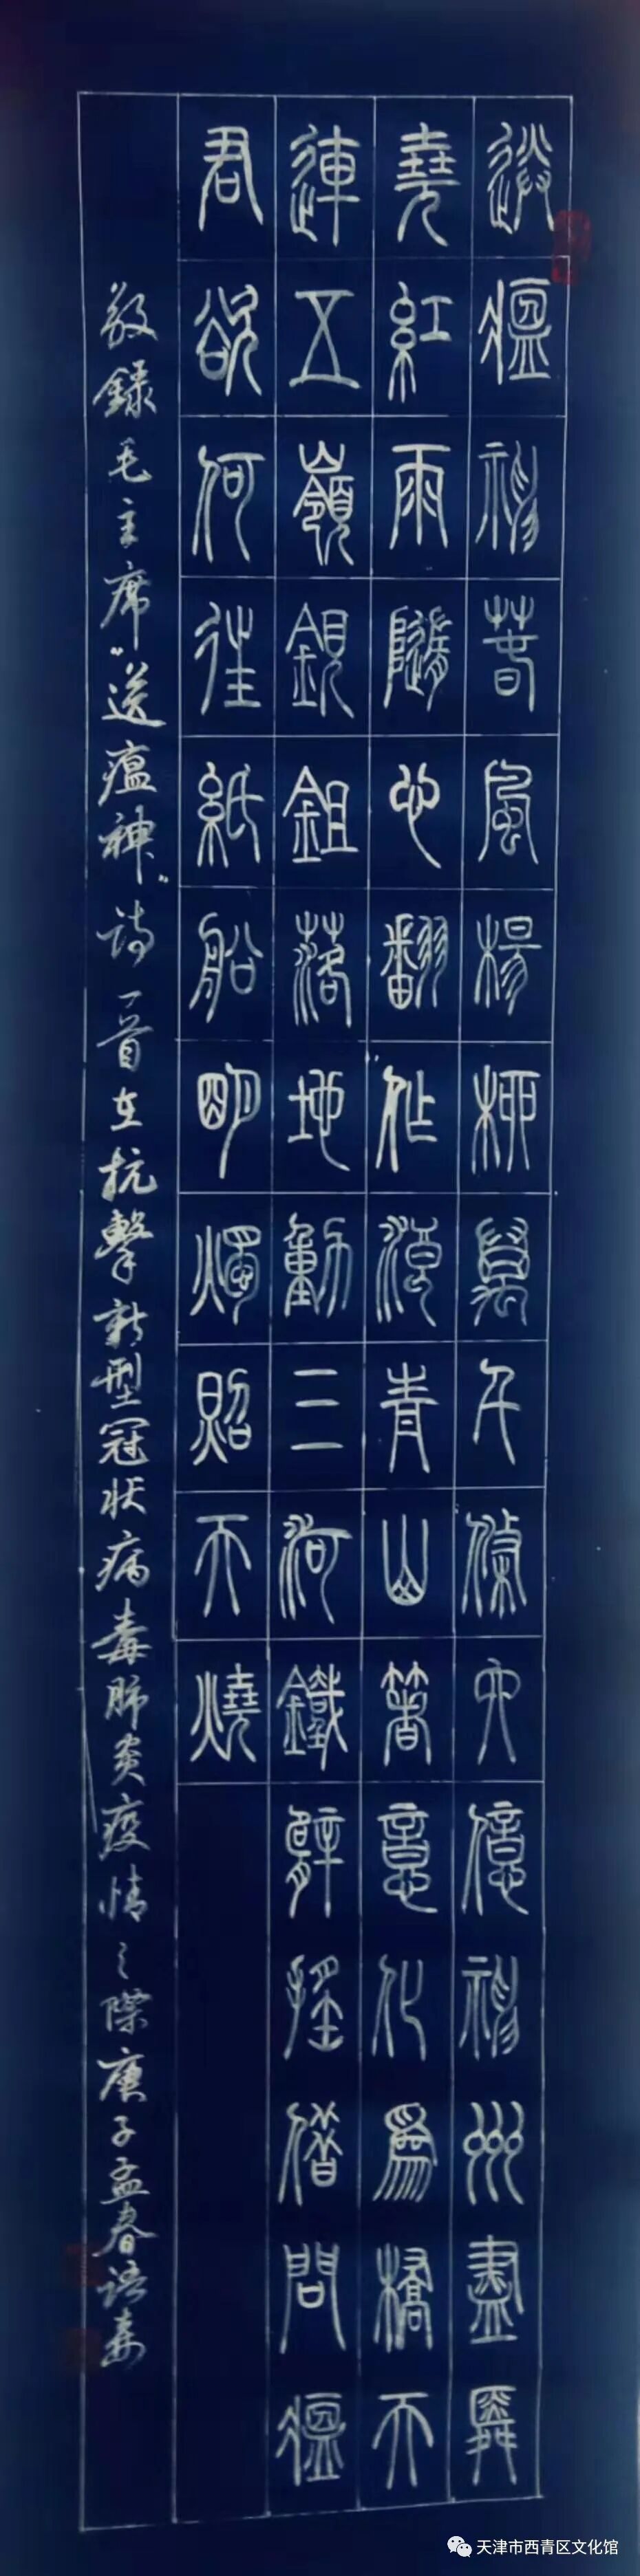 送瘟神春風楊柳萬千條六億神州盡舜
堯紅雨隨心翻作浪青山箸意化為橋天
連五嶺銀鉏落地動三河鐵臂搖借問瘟
君欲何往紙船明燭照天燒
敬錄毛主席“送瘟神”詩一首在抗擊新型冠状病毒肺炎疫情之際庚子孟春
天津市西青区文化馆